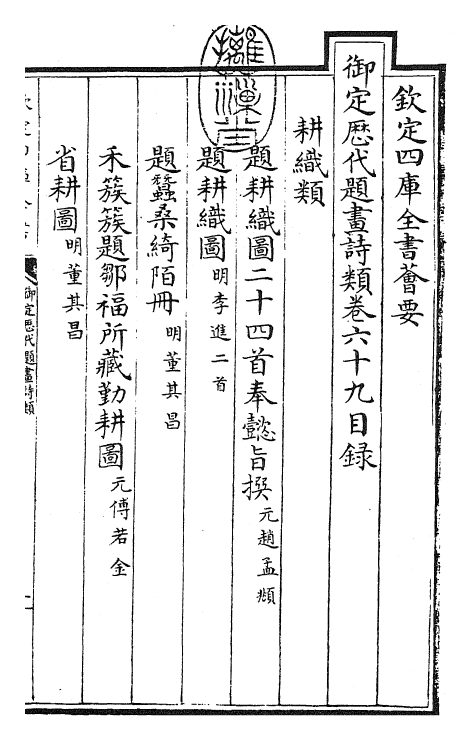 欽定四庫全書薈要
御定歴代題畫詩類卷六十九目録
耕織類
題耕織圖二十四首奉懿旨撰元趙孟頫
題耕織圖明李進二首
題蠶桑綺陌册明董其昌
禾簇簇題鄒福所藏勤耕圖元傅若金
省耕圖明董其昌
御定歴代題畫詩類